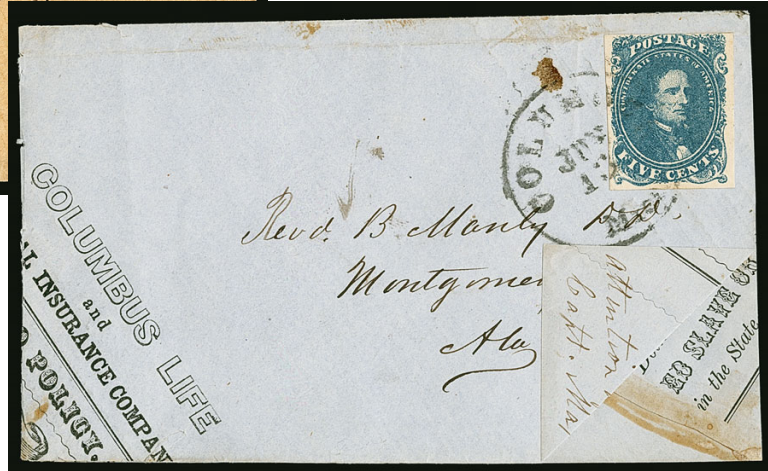 POSTAGE
CONFEDERATE STATES OF AMERICA
FIVE CENTS
COLUMB
JUN
13
MIS
Revd. B Manly
Montgomery
Ala
COLUMBUS LIFE
and
AL INSURANCE COMPAN
POLICY.
attention
Capt.
ED SLAVE UN
in the State